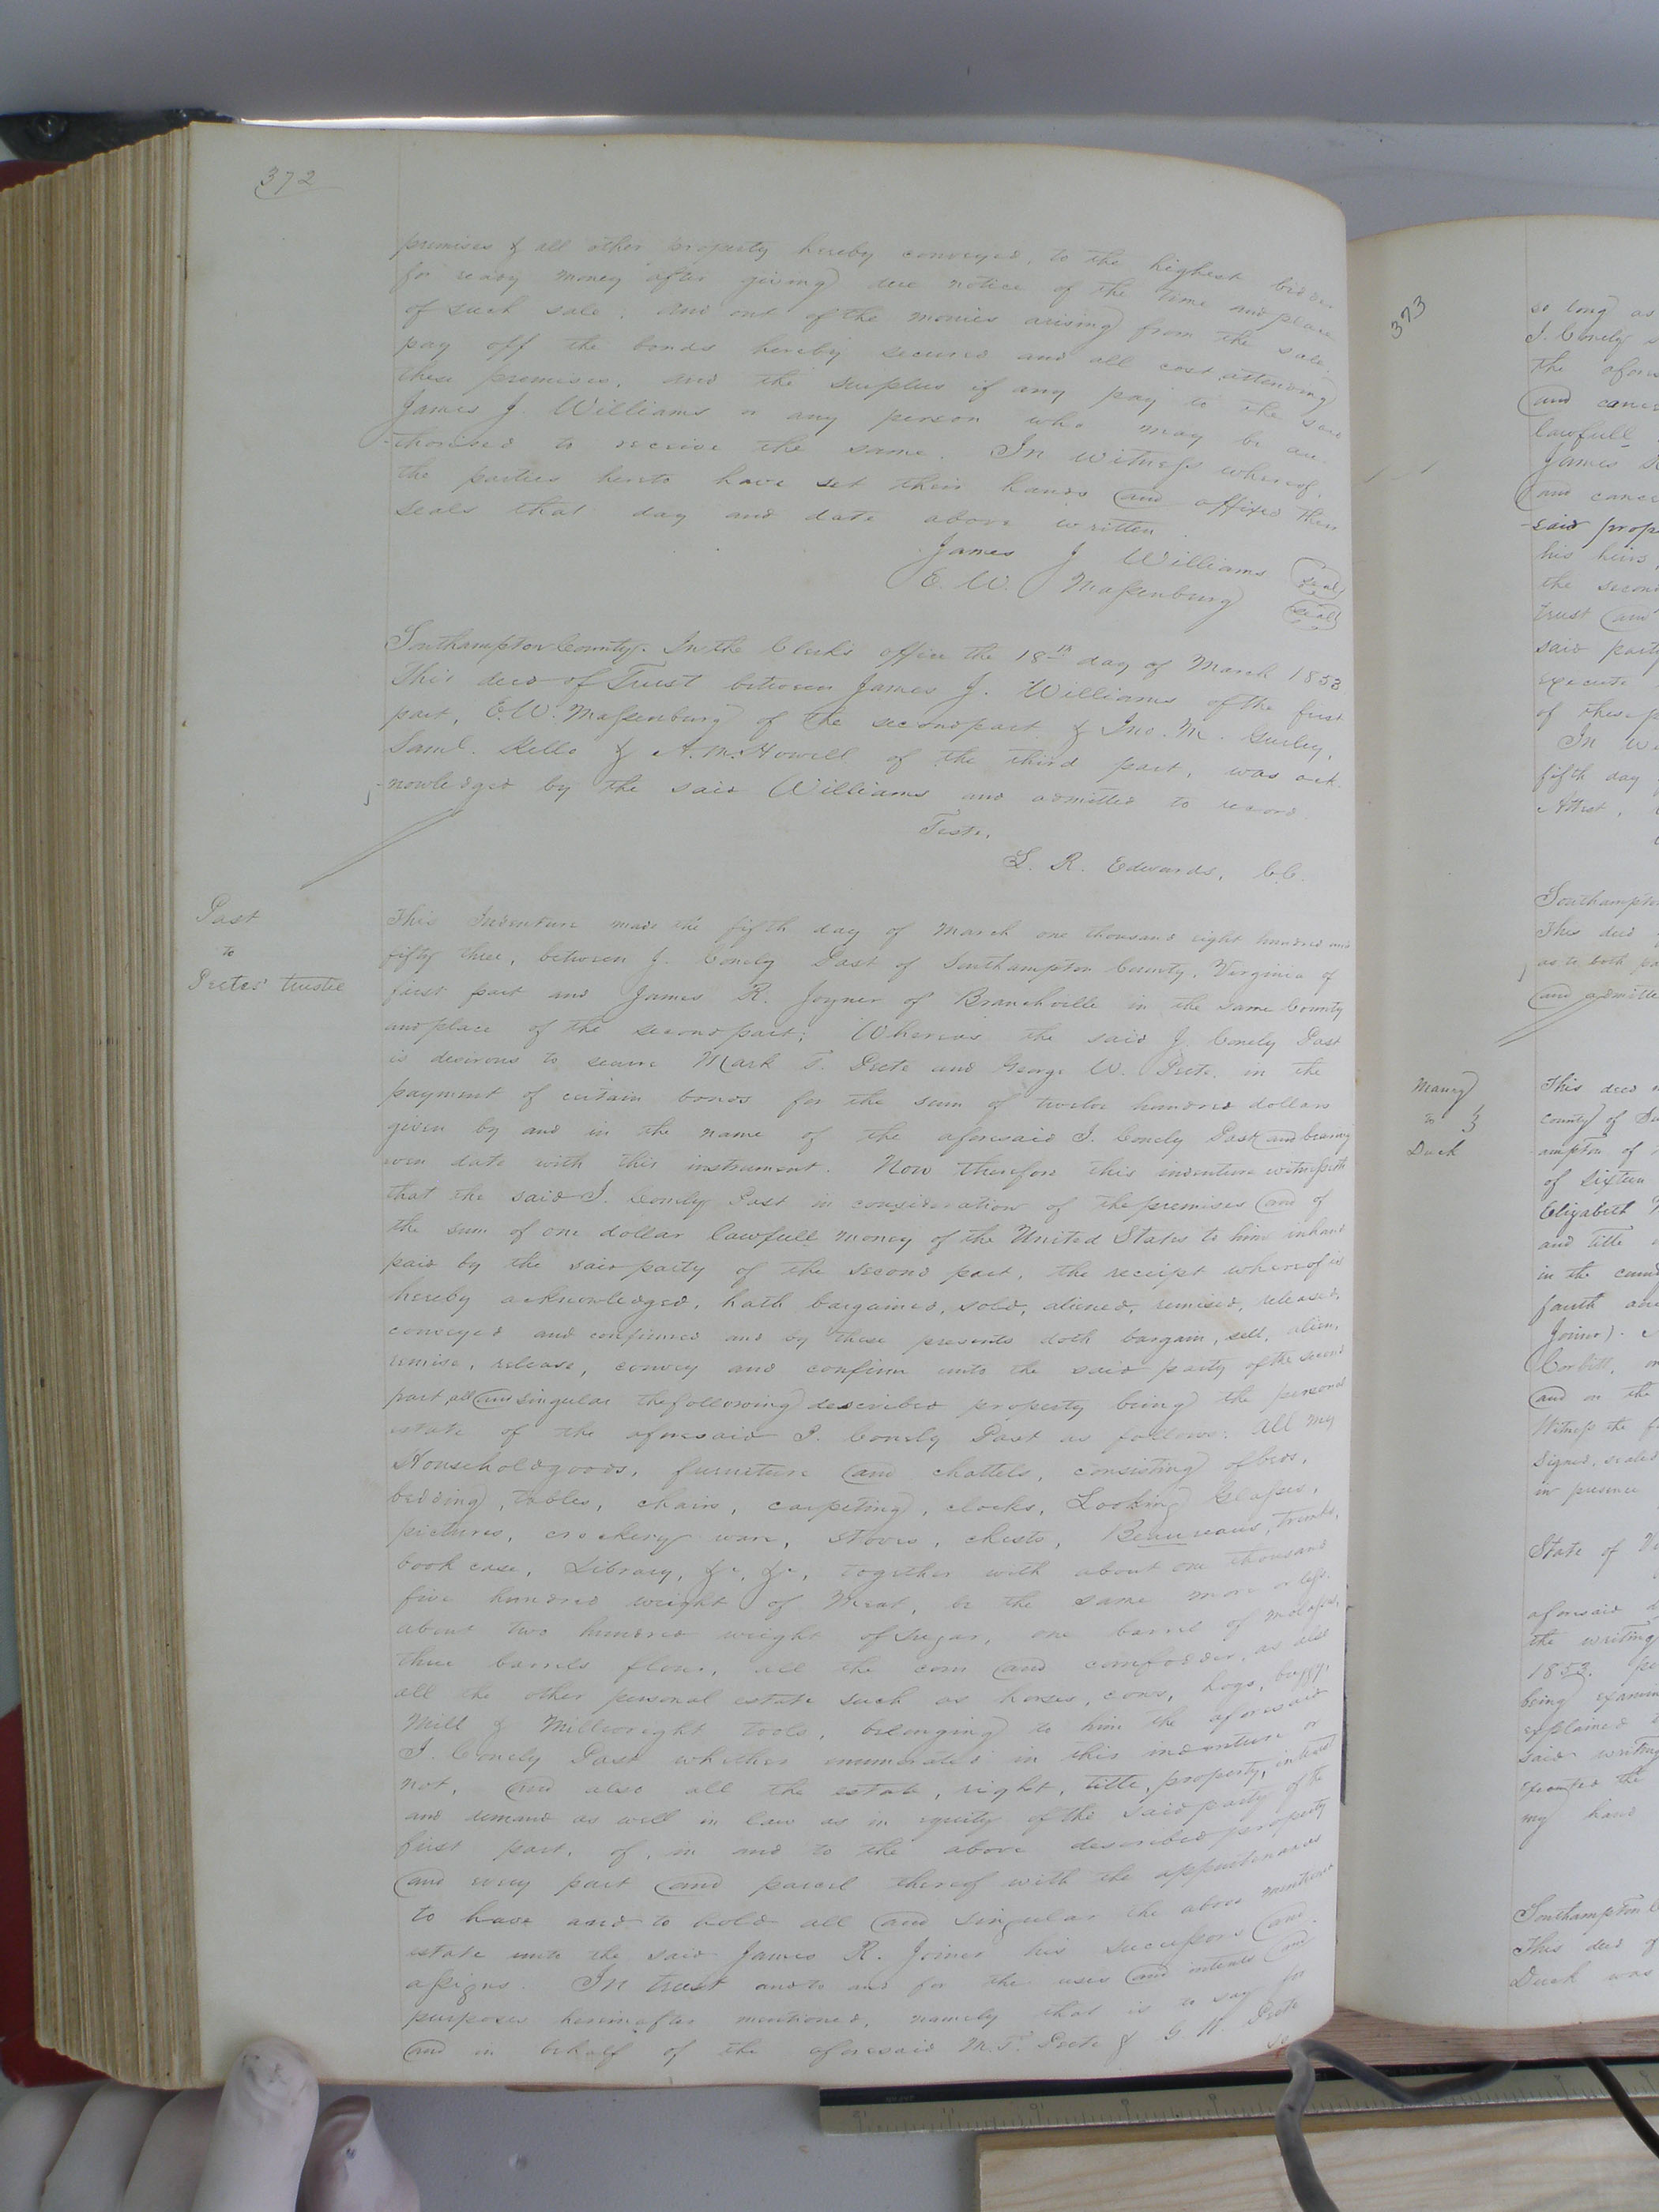 372
premises & all other property hereby conveyed, to the highest bidder
for ready money after giving due notice of the time and place
of such sale; and out of the monies arising from the sale,
pay off the bonds hereby secured and all cost attending
these premises, and the surplus if any pay to the said
James J. Williams or any person who may be au-
-thorised to receive the same. In Witness whereof,
the parties hereto have set their hands and affixed their
seals that day and date above written
James J Williams (seal)
E. W. Massenburg (seal)
Southampton County. In the Clerk's office the 18th day of March 1853
This deed of Trust between James J. Williams of the first
part, E. W. Massenburg of the second part & Jno. M. Gurley,
Saml. Kello & A. M. Howell of the third part, was ack-
-nowledged by the said Williams and admitted to record
Teste,
L. R. Edwards, C.C.
Past
to
Pretes' trustee
This Indenture made the fifth day of March one thousand eight hundred and
fifty three, between J. Conely Past of Southampton County, Virginia of
first part and James R. Joyner of Branchville in the same County
and place of the second part; Whereas the said J. Conely Past
is desirous to secure Mark T. Prete and George W. Prete, in the
payment of certain bonds for the sum of twelve hundred dollars
given by and in the name of the aforesaid J. Conely Past and bearing
even date with this instrument. Now therefore this indenture witnesseth
that the said J. Conely Past in consideration of the premises and of
the sum of one dollar lawfull money of the United States to him in hand
paid by the said party of the second part, the receipt whereof is
hereby acknowledged, hath bargained, sold, aliened, remised, released,
conveyed and confirmed and by these presents doth bargain, sell, alien,
remise, release, convey and confirm unto the said party of the second
part, all and singular the following described property being the personal
estate of the aforesaid J. Conely Past as follows: All my
Household goods, furniture and chattels, consisting of beds,
bedding, tables, chairs, carpeting, clocks, Looking Glasses,
pictures, crockery ware, stoves, chests, Beaureaus, trunks,
book case, Library, &c, &c, together with about one thousand
five hundred weight of Meat, be the same more or less.
about two hundred weight of sugar, one barrel of molasses,
three barrels flour, all the corn and cornfodder, as also
all the other personal estate such as horses, cows, hogs, buggy,
Mill & Millwright tools, belonging to him the aforesaid
J. Conely Past whether enumerated in this indenture or
not, and also all the estate, right, title, property, interest
and demand as well in law as in equity of the said party of the
first part, of, in and to the above described property
and every part and parcel thereof with the appurtenances
to have and to hold all and singular the above mentioned
estate unto the said James R. Joiner his successors and
assigns. In trust and to and for the uses and intents and
purposes hereinafter mentioned, namely that is to say for
and in behalf of the aforesaid M. T. Prete & G. W. Prete
so
373
so long as
J. Conely
the
and
lawfull
James
and
said
his heirs,
the second
trust and
said party
execute
of these
In
fifth day
Attest,
Southampton
This deed
as to both
and admitted
Maury
to
Duck
This deed
county of
ampton of
of sixteen
Elizabeth
and title
in the
fourth
Joiner).
Corbitt,
and on the
Witness the
Signed, sealed
in presence
State of
aforesaid
the writing
1853.
being
explained
said writing
executed the
my hand
Southampton
This deed of
Duck was